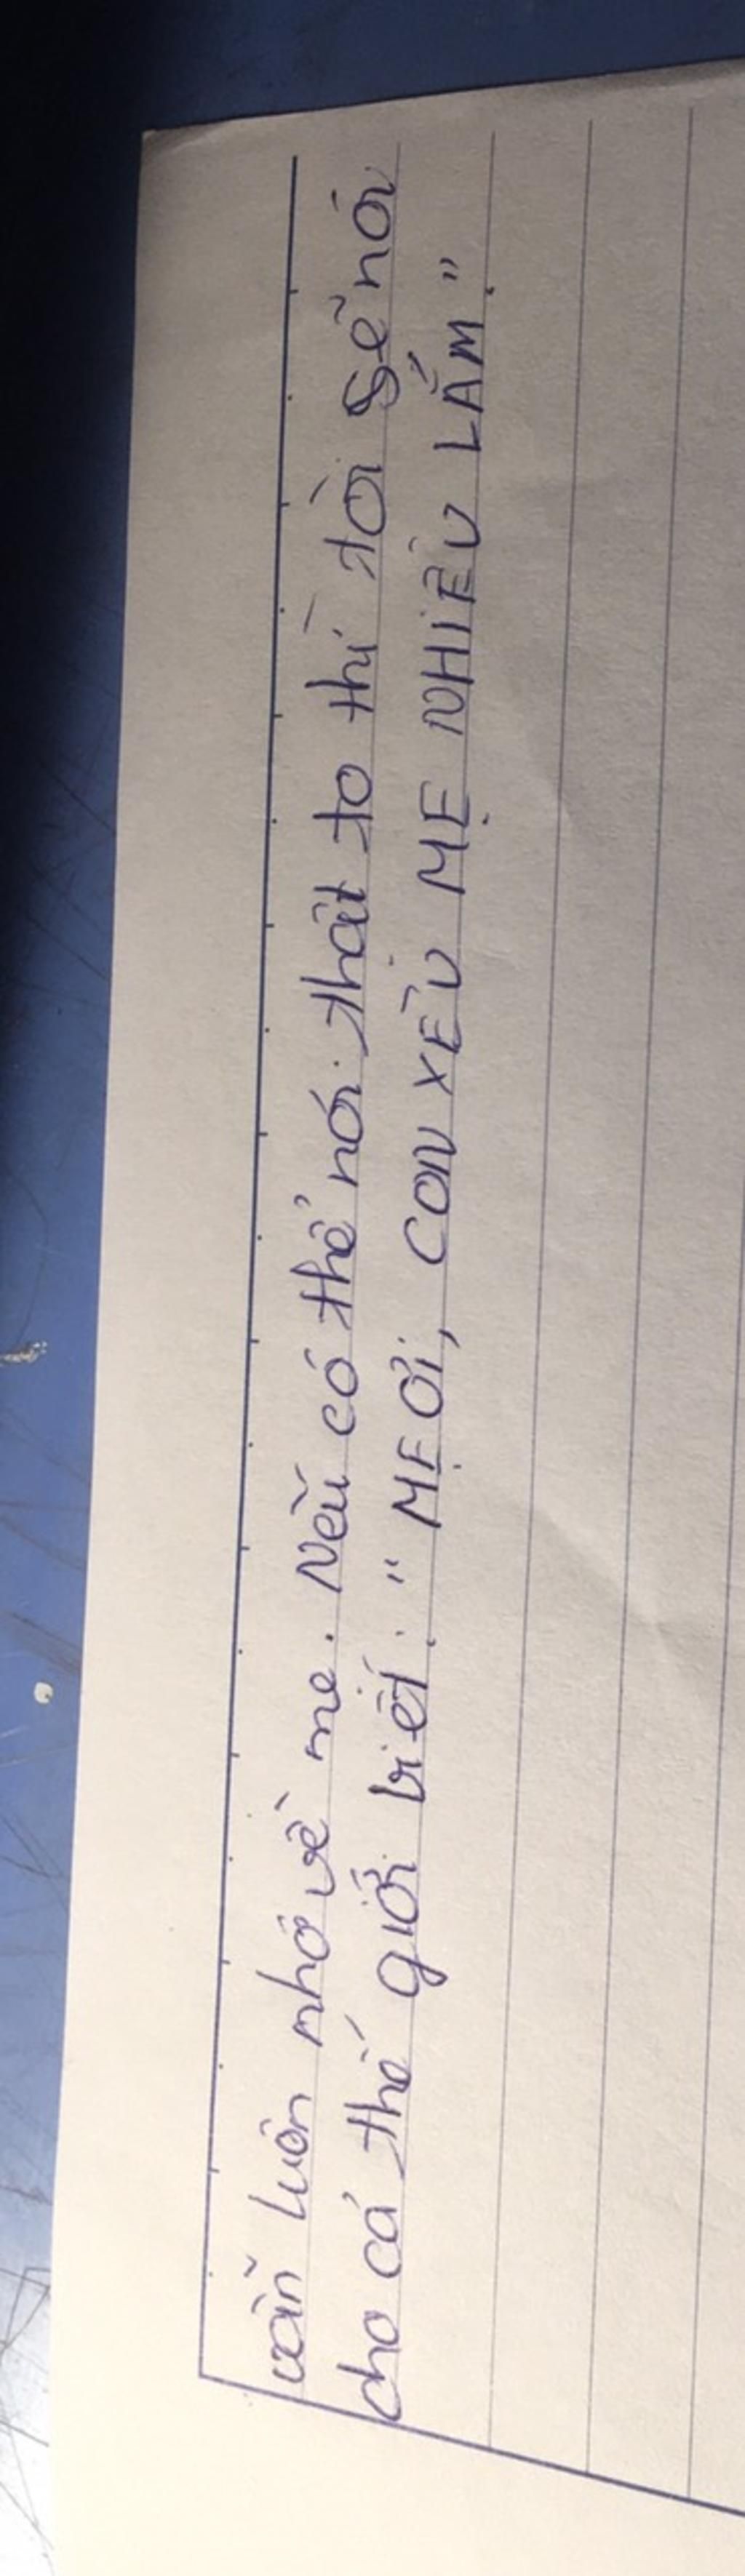 vẫn luôn nhớ về mẹ. Nếu có thể nói thật to thì tôi sẽ nói
cho cả thế giới biết: "MẸ ƠI, CON YÊU MẸ NHIỀU LẮM."